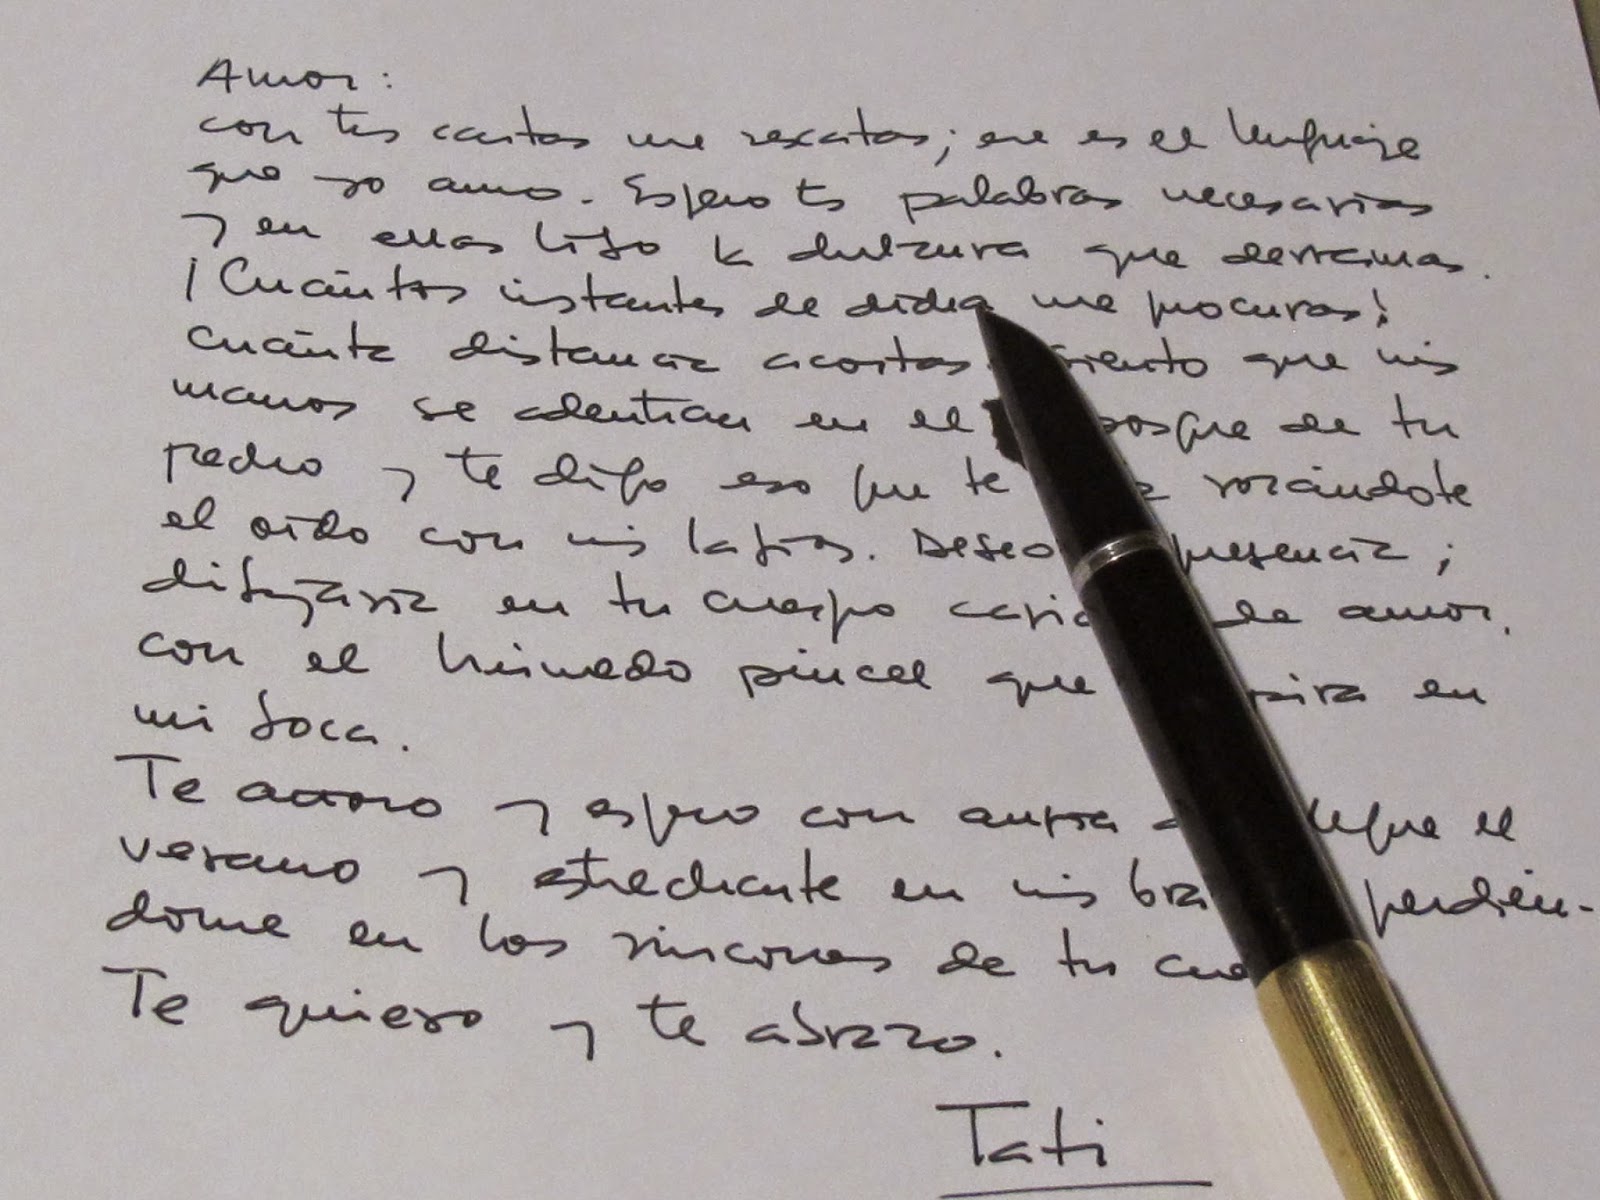 Amor:
con tus cartas me rescatas; ese es el lenguaje
que yo amo. Espero tus palabras necesarias
y en ellas libo la dulzura que derramas.
¡Cuántos instantes de dicha me procuras!
Cuánta distancia acortas siento que mis
manos se adentran en el bosque de tu
pecho y te digo eso que te rozándote
el oído con mis labios. Deseo presencia;
dibujaría en tu cuerpo de amor,
con el húmedo pincel que en
mi boca.
Te adoro y espero con ansia llegue el
verano y estrecharte en mis perdién-
dome en los rincones de tu
Te quiero y te abrazo.
Tati